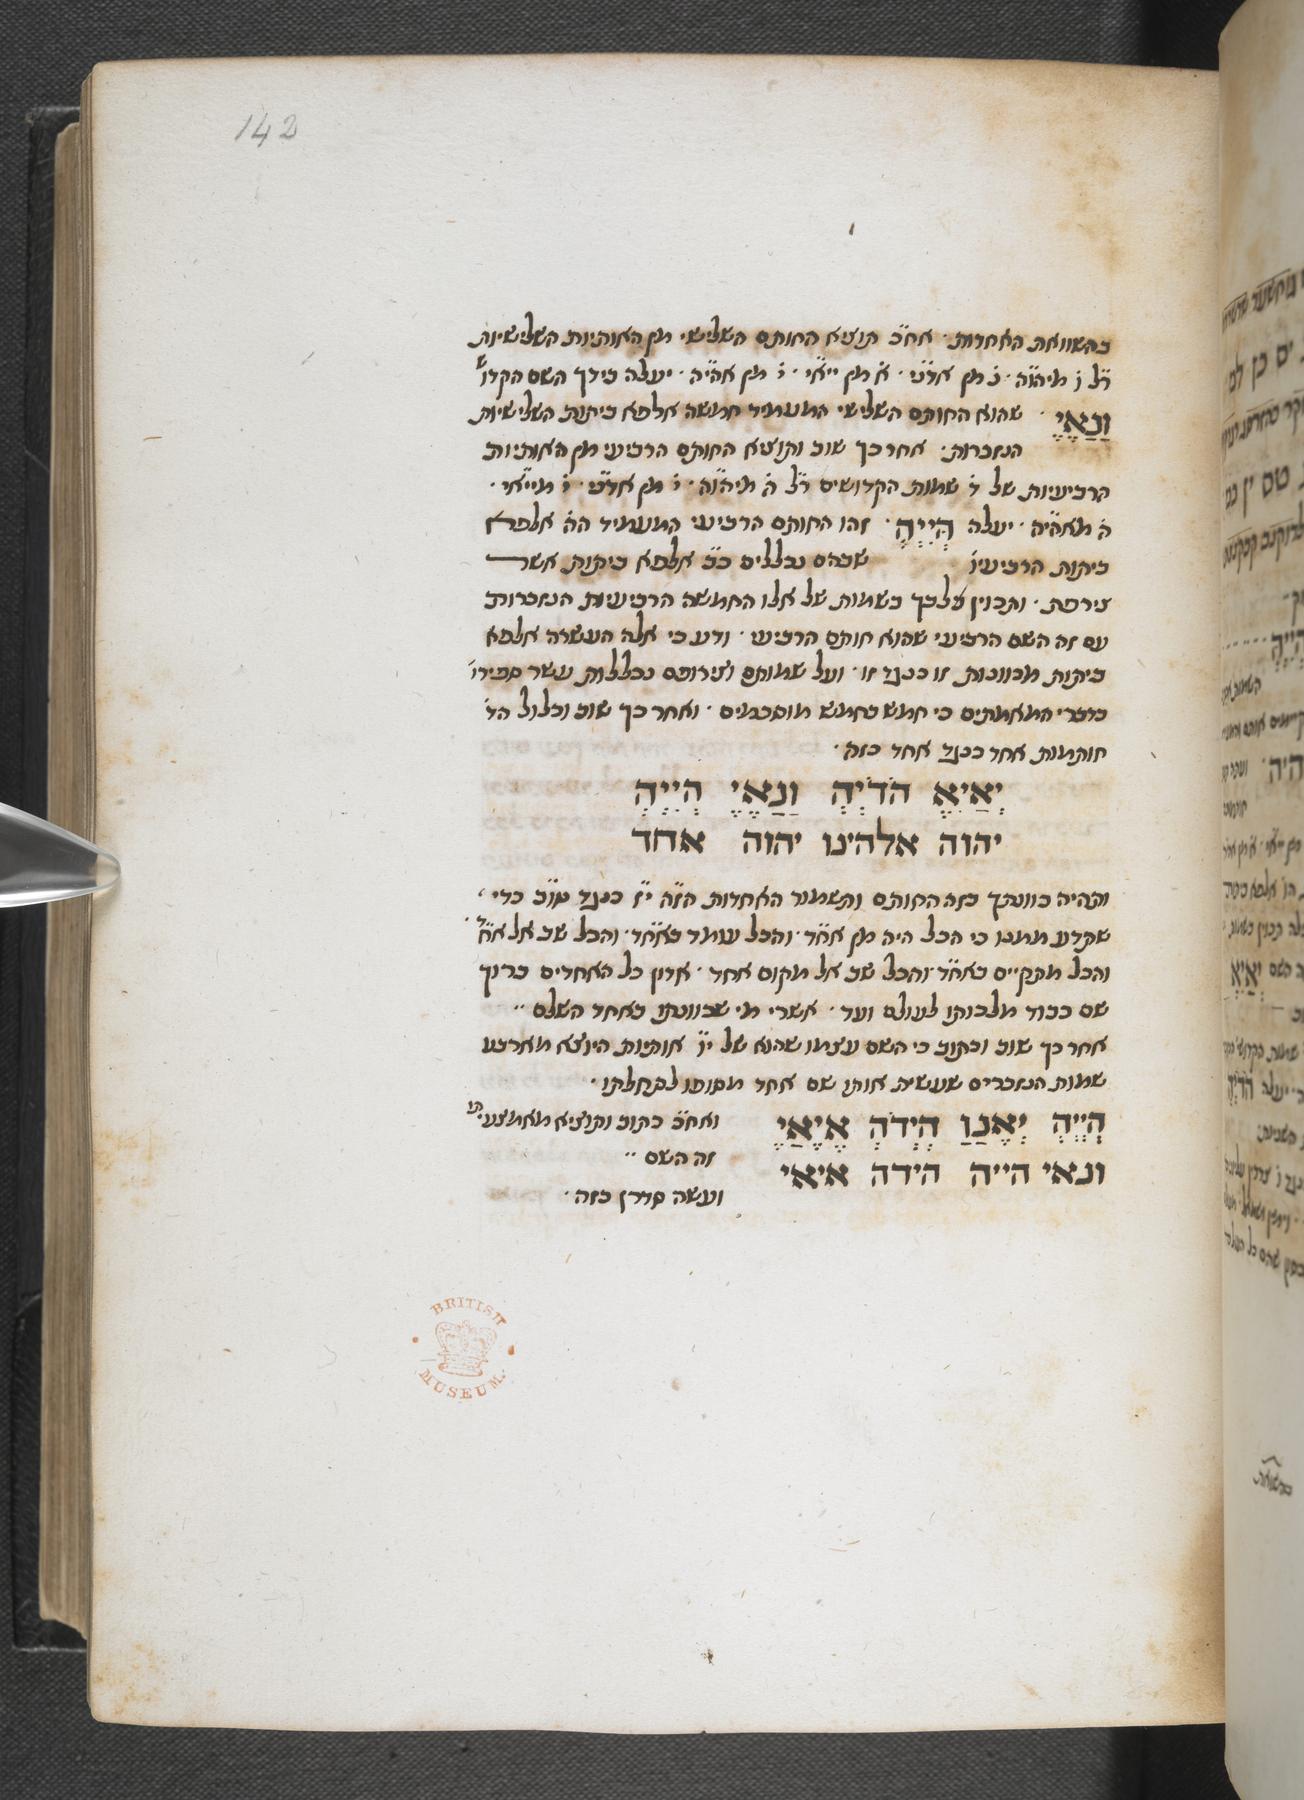 142
בהשוואת האחדות· אח״כ תוציא החותם השלישי מן האותיות השלישיות
ר״ל ו מיהו״ה· נ מן אדנ״י· א מן ייא״י· י מן אהי״ה· יעלה בידך השם הקדו״ש
וַנַאֱיֶ· שהוא החותם השלישי המעמיד חמשה אלפא ביתות השלישיות
הנזכרות· אחר כך שוב ותוציא החותם הרביעי מן האותיות
הרביעיות של ד שמות הקדושים ר״ל ה מיהו״ה· י מן אדנ״י· י מייא״י·
ה מאהי״ה· יעלה הְיִיְהֶ· וזהו החותם הרביעי המעמיד הה׳ אלפא
ביתות הרביעיו׳ שבהם נכללים כ״ב אלפא ביתות אשר
צירפת· ותכוין בלבך בשמות של אלו החמשה הרביעיות הנזכרות
עם זה השם הרביעי שהוא חותם הרביעי· ודע כי אלה העשרה אלפא
ביתות מכוונות זו כנגד זו· ועל שמותם וצירופם נכללות עשר ספירו׳
כדברי המאמתים כי חמש כחמש מוסכמים· ואחר כך שוב וכלול הד׳
חותמות אחד כנגד אחד כזה·
יְאַיִאֶ הֹדֹיְהְ וַנַאֱיֶ הְיִיְהֶ
יהוה אלהינו יהוה אחד
ותהיה כוונתך בזה החותם והשמור האחדות הז״ה י״ז כנגד טו״ב כדי
שתדע ממנו כי הכל היה מן אח״ד· והכל עומד באח״ד· והכל שב אל אח״ד·
והכל מתקיים באח״ד· והכל שב אל מקום אחד· אדון כל האחדים ברוך
שם כבוד מלכותו לעולם ועד· אשרי מי שכוונתו באחד השלם··
אחר כך שוב וכתוב כי השם עצמו שהוא של י״ו אותיות היוצא מארבע
שמות הנזכרים שעשית אותו שם אחד מסופו לתחלתו·
הְיִיְהְ יְאֱנַוַ הְיְדֹהְ אֶיֶאַיֶ ואח״כ כתוב ותוציא מאמצעיתו
זה השם··
ונאי הייה הידה איאי
ועשה סדרן כזה·
BRITISH
MUSEUM